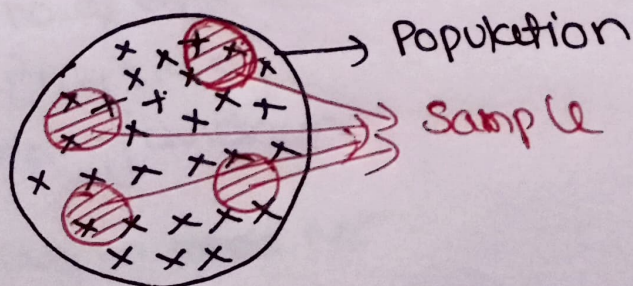 Population
Sample